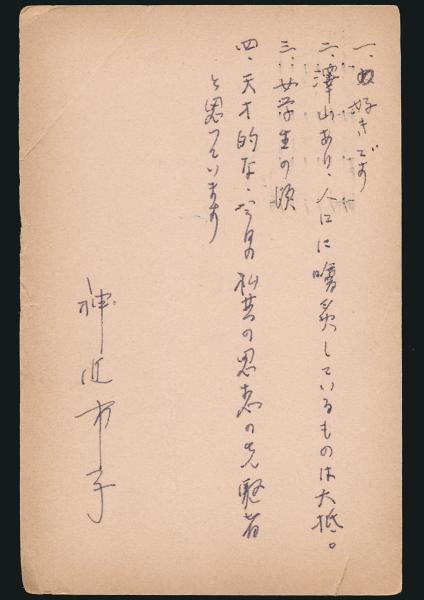 一、好きです
二、澤山あり、人口に噲炙しているものは大抵。
三、女学生の頃
四、天才的な、今日の私共の思想の先駆者
と思っています
神近市子